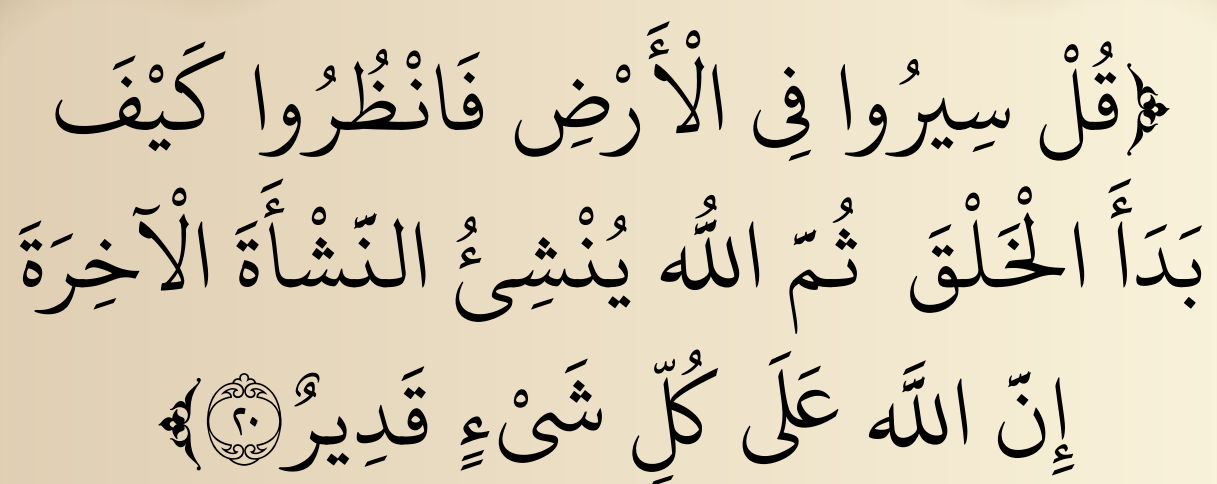 ﴿قُلْ سِيرُوا فِى الْأَرْضِ فَانْظُرُوا كَيْفَ
بَدَأَ الْخَلْقَ ثُمّ اللهُ يُنْشِئُ النّشْأَةَ الْآخِرَةَ
إِنّ اللهَ عَلَى كُلِّ شَىْءٍ قَدِيرٌ ٢٠﴾